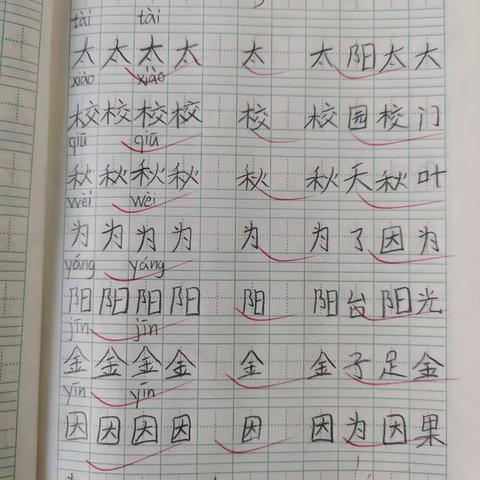 tài tài
太 太 太 太 太 太 阳 太 大
xiào xiào
校 校 校 校 校 校 园 校 门
qiū qiū
秋 秋 秋 秋 秋 秋 天 秋 叶
wèi wèi
为 为 为 为 为 为 了 因 为
yáng yáng
阳 阳 阳 阳 阳 阳 台 阳 光
jīn jīn
金 金 金 金 金 金 子 足 金
yīn yīn
因 因 因 因 因 因 为 因 果